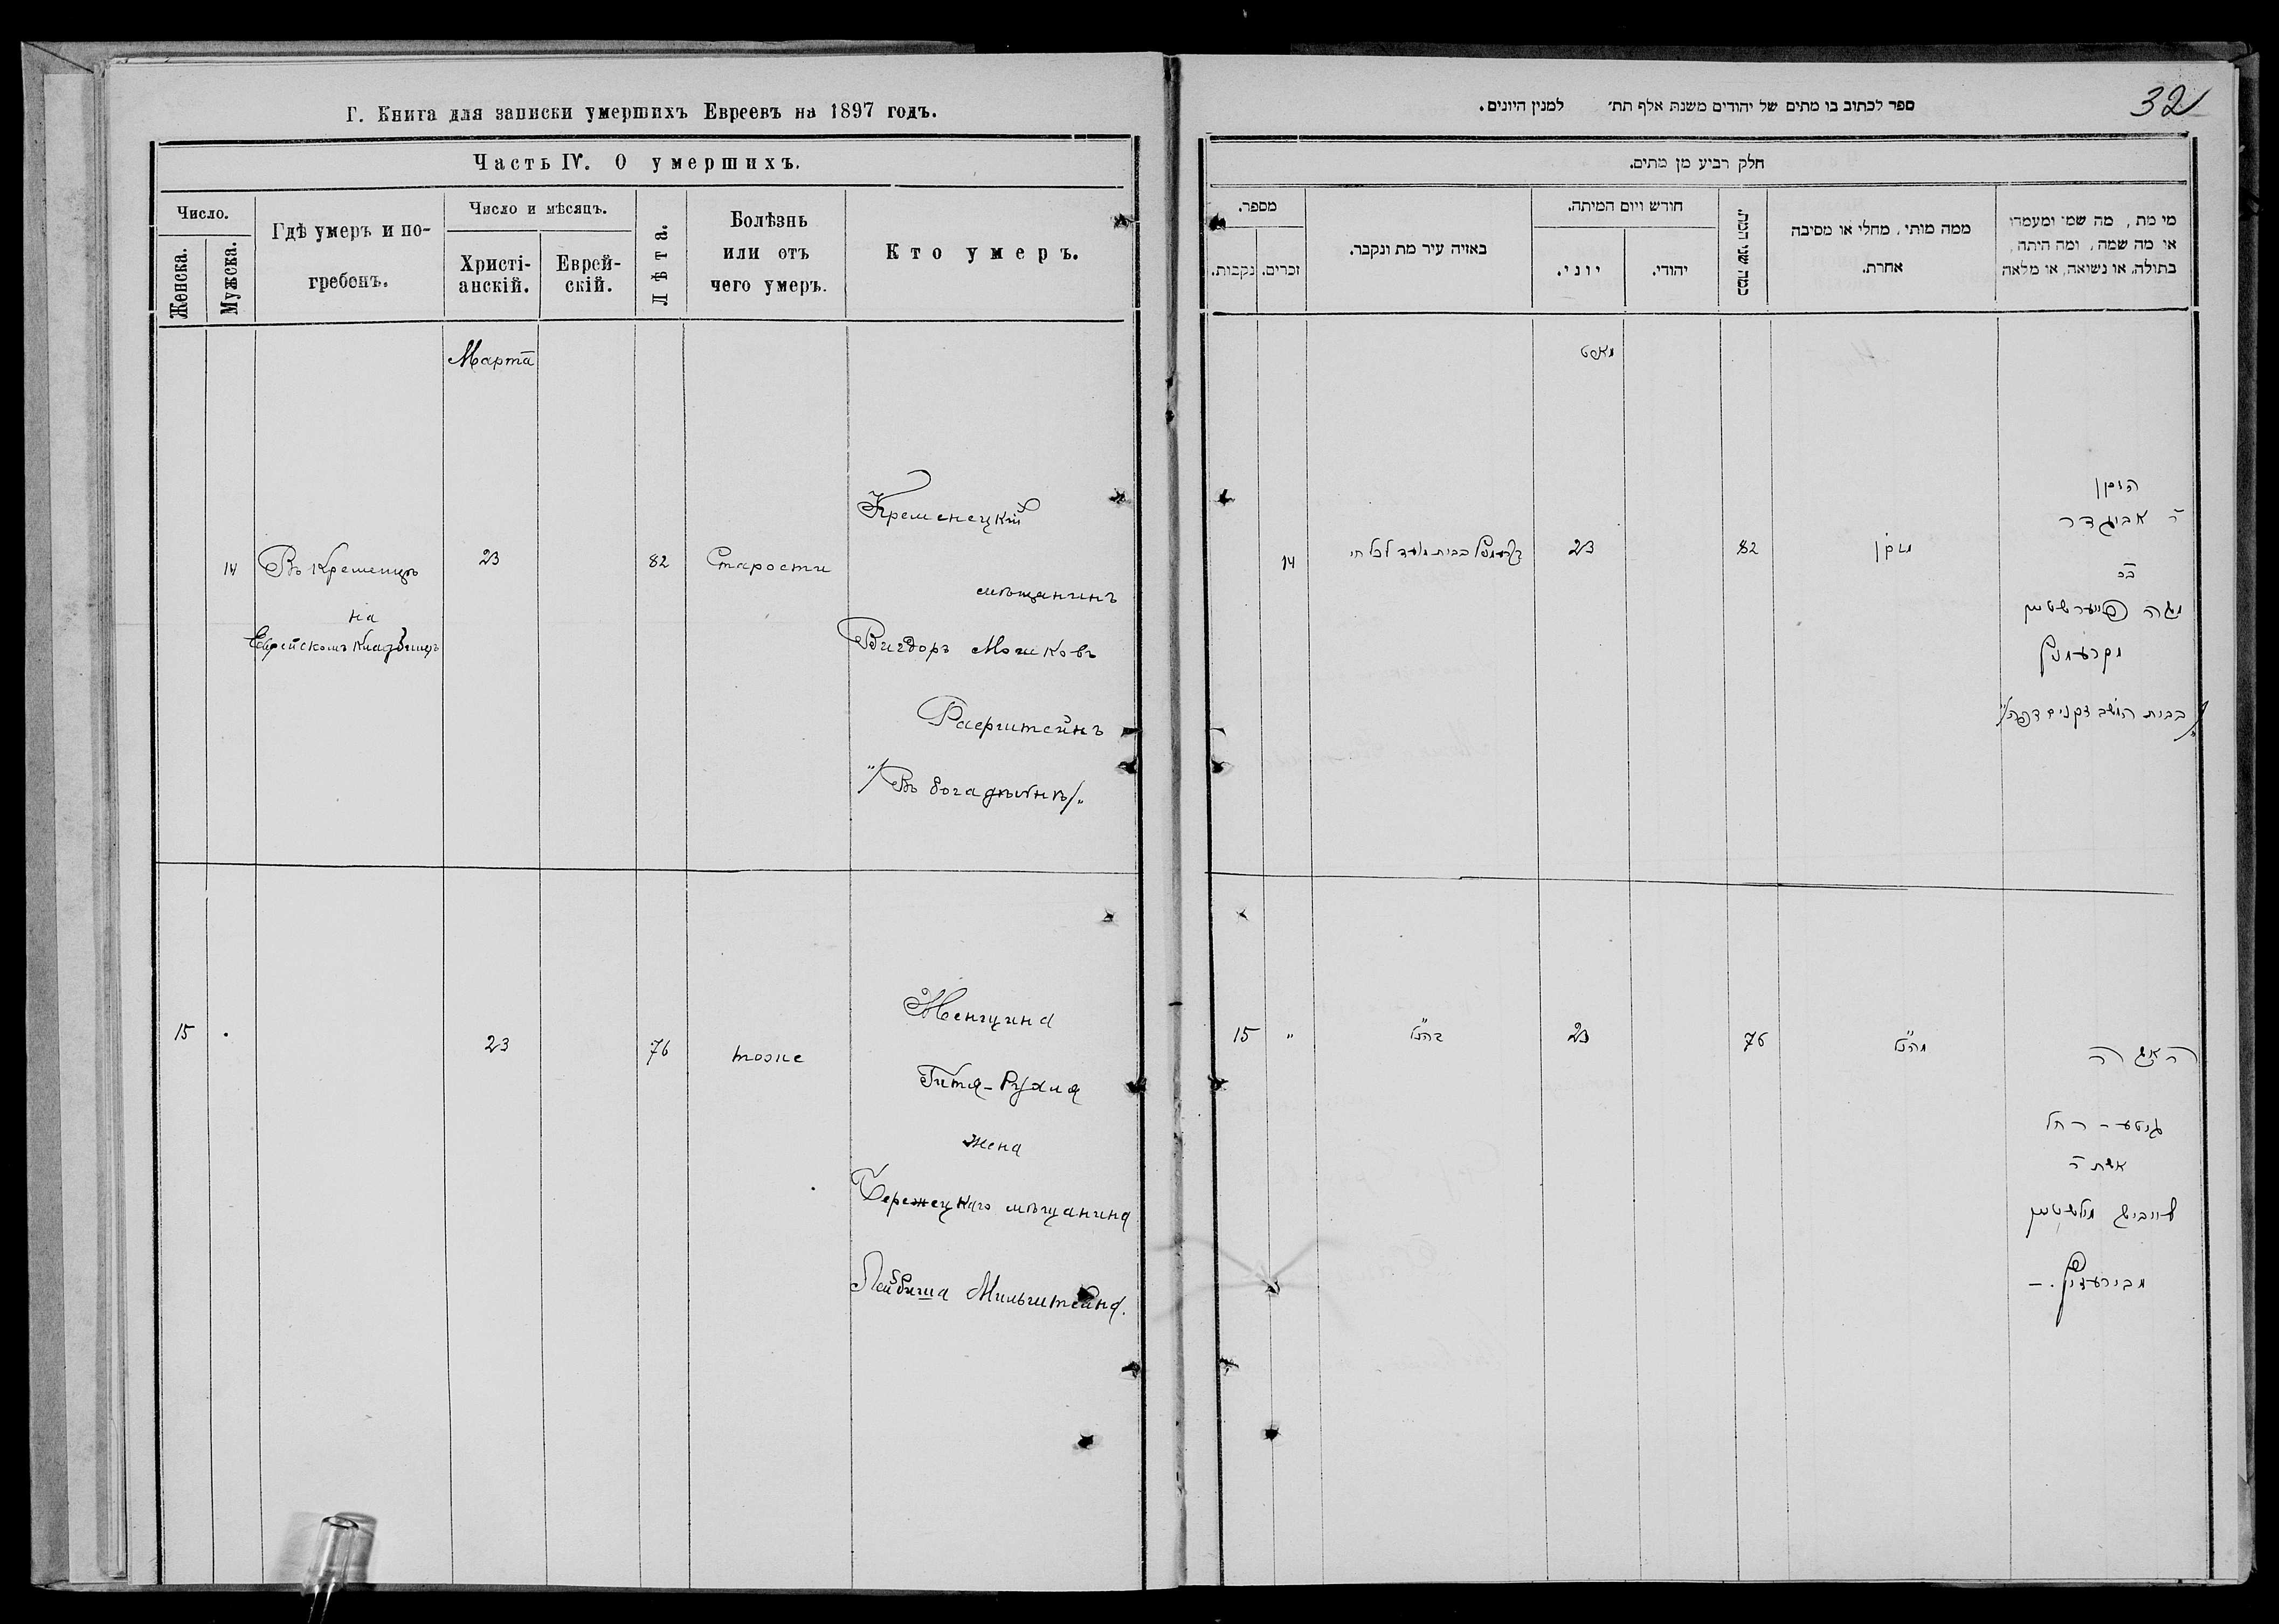 Г. Книга для записки умершихъ Евреевъ на 1897 годъ.
Часть IV. О умершихъ.
Число.
Женска.
Мужска.
Гдѣ умеръ и по-
гребенъ.
Число и мѣсяцъ.
Христі-
анскій.
Еврей-
скій.
Лѣта.
Болѣзнь
или отъ
чего умеръ.
Кто умеръ.
Марта
14
Въ Кременцѣ
на
Еврейскомъ Кладбищѣ
23
82
Старости
Кременецкій
мѣщанинъ
Вигдоръ Мошковъ
Фаерштейнъ
"/Въ богадѣльнѣ/"
15
23
76
тоже
Женщина
Гитя-Рухля
жена
Бережецкаго мѣщанина
Лейбиша Мильштейна.
32
ספר לכתוב בו מתים של יהודים משנת אלף תת׳ למנין היונים.
חלק רביע מן מתים.
מספר.
נקבות.
זכרים.
באזיה עיר מת ונקבר.
חודש ויום המיתה.
יוני.
יהודי.
ממה מותי, מחלי או מסיבה
אחרת.
מי מת, מה שמו ומעמדו
או מה שמה, ומה היתה,
בתולה, או נשואה, או מלאה
מארט
14
23
82
הזקן
ר׳ אביגדר
ב״ר
משה פייערשטיין
מקרעמניץ
15
"
כהנ״ל
23
76
מהנ״ל
האשה
גיטע - רחל
אשת ר׳
לייביש מילשטיין